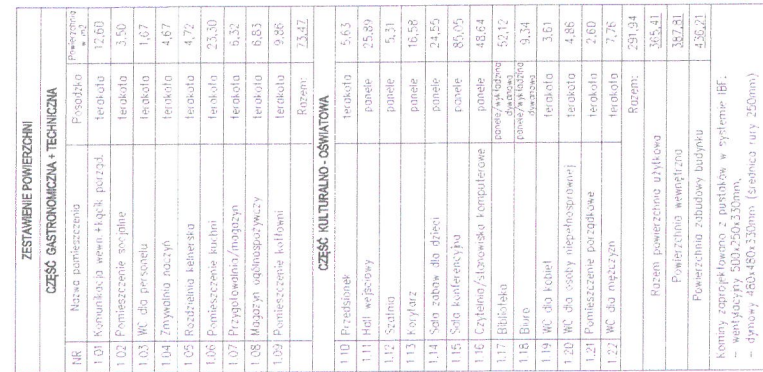 ZESTAWIENIE POWIERZCHNI
CZĘŚĆ GASTRONOMICZNA + TECHNICZNA
NR Nazwa pomieszczenia Posadzka Powierzchnia w m2
1.01 Komunikacja wewn.+kącik porząd. terakota 12,60
1.02 Pomieszczenie socjalne terakota 3,50
1.03 WC dla personelu terakota 1,67
1.04 Zmywalnia naczyń terakota 4,67
1.05 Rozdzielnia kelnerska terakota 4,72
1.06 Pomieszczenie kuchni terakota 23,30
1.07 Przygotowalnia/magazyn terakota 6,32
1.08 Magazyn ogólnospożywczy terakota 6,83
1.09 Pomieszczenie kotłowni terakota 9,86
Razem: 73,47
CZĘŚĆ KULTURALNO - OŚWIATOWA
1.10 Przedsionek terakota 5,63
1.11 Hall wejściowy panele 25,89
1.12 Szatnia panele 5,31
1.13 Korytarz panele 16,58
1.14 Sala zabaw dla dzieci panele 24,55
1.15 Sala konferencyjna panele 85,05
1.16 Czytelnia/stanowiska komputerowe panele 48,64
1.17 Biblioteka panele/wykładzina dywanowa 52,12
1.18 Biuro panele/wykładzina dywanowa 9,34
1.19 WC dla kobiet terakota 3,61
1.20 WC dla osoby niepełnosprawnej terakota 4,86
1.21 Pomieszczenie porządkowe terakota 2,60
1.22 WC dla mężczyzn terakota 7,76
Razem: 291,94
Razem powierzchnia użytkowa 365,41
Powierzchnia wewnętrzna 387,81
Powierzchnia zabudowy budynku 436,21
Kominy zaprojektowano z pustaków w systemie IBF:
- wentylacyjny 500x250x330mm,
- dymowy 480x480x330mm (średnica rury 250mm)